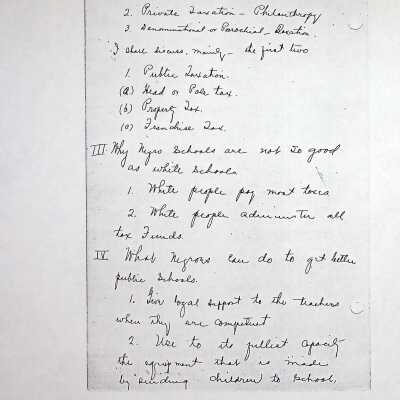 2. Private Taxation - Philanthropy
3. Denominational or Parochial - Taxation.
I shall discuss, mainly - the first two
1. Public Taxation.
(a) Head or Pole tax.
(b) Property Tax.
(c) Franchise Tax.
III Why Negro Schools are not so good
as white Schools
1. White people pay most taxes
2. White people administer all
tax Funds.
IV What Negroes can do to get better
public Schools.
1. Give loyal support to the teachers
when they are competent
2. Use to its fullest capacity
the equipment that is made
by sending children to School.